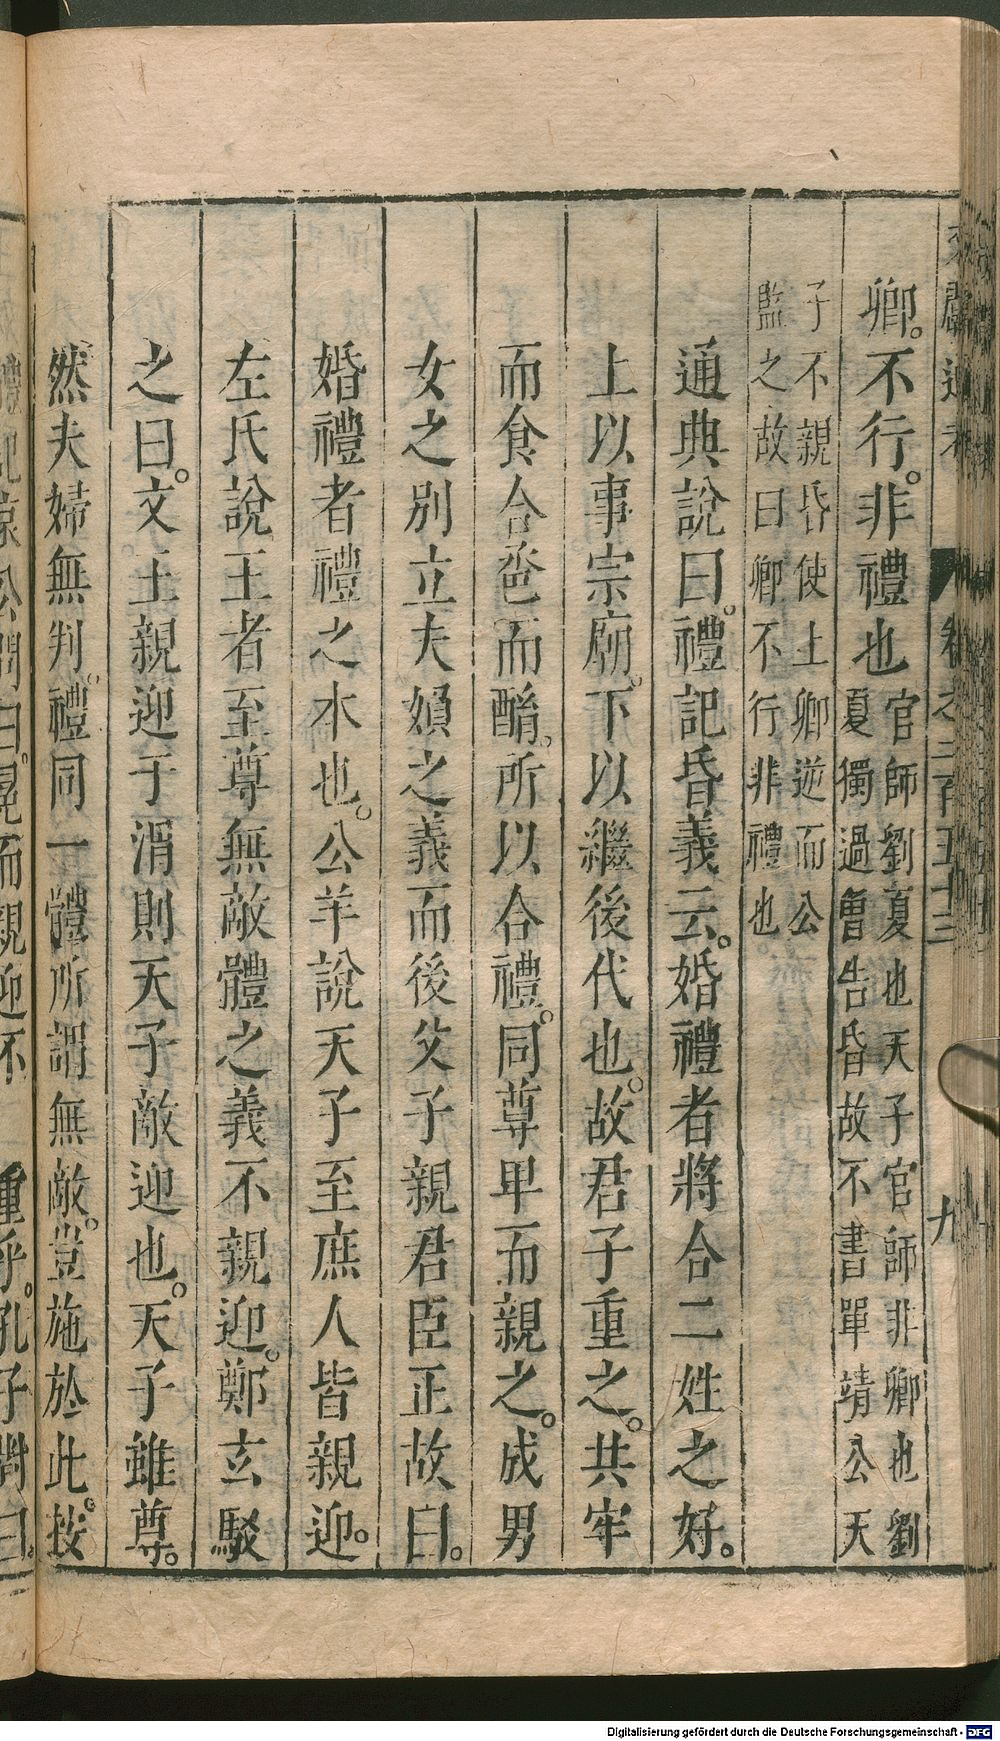 卿。不行。非禮也官師劉夏也天子官師非卿也劉
夏獨過魯告昏故不書單靖公天
子不親昏使上卿逆而公
監之故曰卿不行非禮也。
通典說曰。禮記昏義云。婚禮者將合二姓之好。
上以事宗廟。下以繼後代也。故君子重之。共牢
而食合巹而酳。所以合禮。同尊卑而親之。成男
女之別立夫婦之義而後父子親君臣正故曰。
婚禮者禮之本也。公羊說天子至庶人皆親迎。
左氏說王者至尊無敵體之義不親迎。鄭玄駁
之曰。文王親迎于渭則天子敵迎也。天子雖尊。
然夫婦無判。禮同一體所謂無敵。豈施於此。按
禮記哀公問曰。冕而親迎不
重乎。孔子對曰。
卷之二百五十三
九
Digitalisierung gefördert durch die Deutsche Forschungsgemeinschaft - DFG